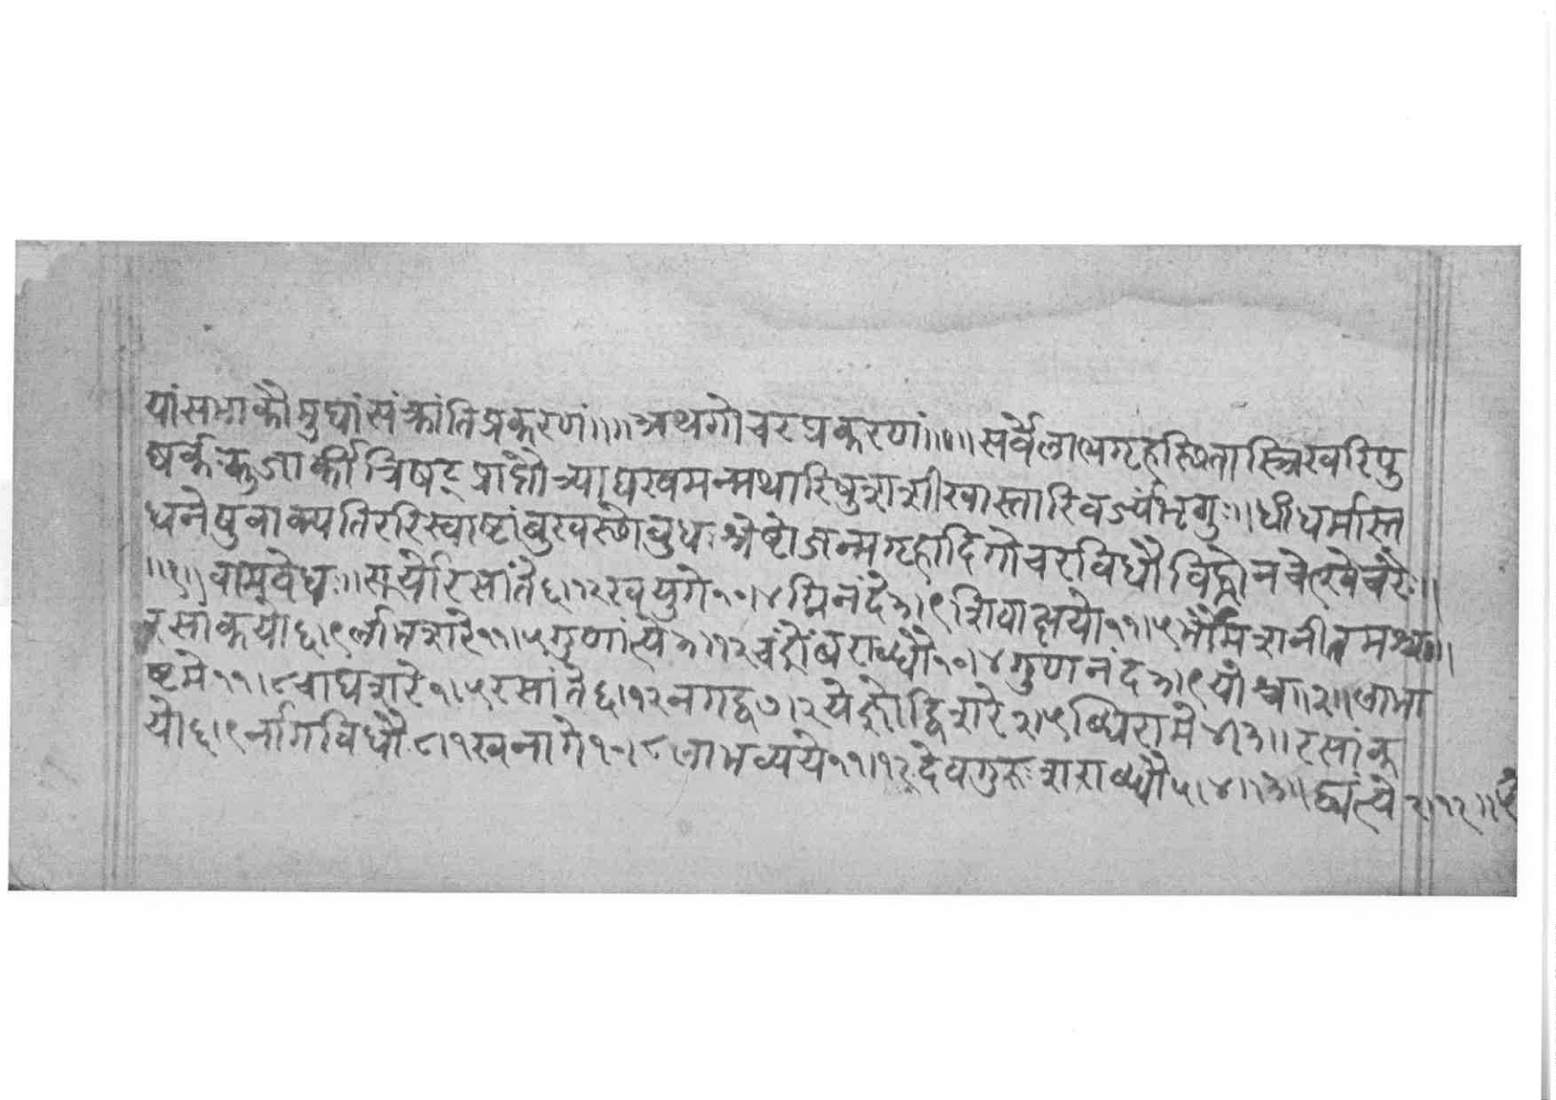 यां समाकौमुघां संक्रांतिप्रकरणं ॥॥ अथगोचरप्रकरणं ॥॥ सर्वेलाभगृहस्थितास्त्रिखरिपु
ष्वर्कः कुजार्की त्रिषट् प्राद्यौ त्र्याद्यखमन्मथारिषु शशी खास्तारिवर्ज्यं भृगुः ॥ धीधर्मास्त
धनेषु वाक्पतिररिस्वाष्टांबुखस्थो बुधः श्रेष्टो जन्मगृहादिगोचरविधौ विद्धो न चेत्खेचरैः ॥
॥१॥ वामवेधः ॥ सूर्यो रसांते ६।१२ खयुगे १०।४ ग्निनंदे ३।९ शिवाक्षयो ११।५ र्भौम शनी तमश्च ॥
रसांकयो ६।९ र्लाभशरे ११।५ गुणांत्ये ३।१२ चंद्रोंबराब्धौ १०।४ गुणनंद ३।९ योश्च ॥२॥ लाभा
ष्टमे ११।८ चाद्यशरे १।५ रसांते ६।१२ नगद्व ७।२ ये ज्ञो द्विशरे २।५ ब्धिरामे ४।३ ॥ रसांक
यो ६।९ र्नागविधौ ८।१ खनागे १०।८ लाभव्यये ११।१२ देवगुरुः शराब्धौ ५।४ ॥३॥ द्यंत्ये २।१२ ॥